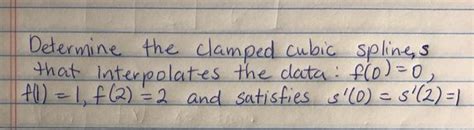 Determine the clamped cubic spline, s
that interpolates the data: f(0)=0,
f(1)=1, f(2)=2 and satisfies s'(0)=s'(2)=1